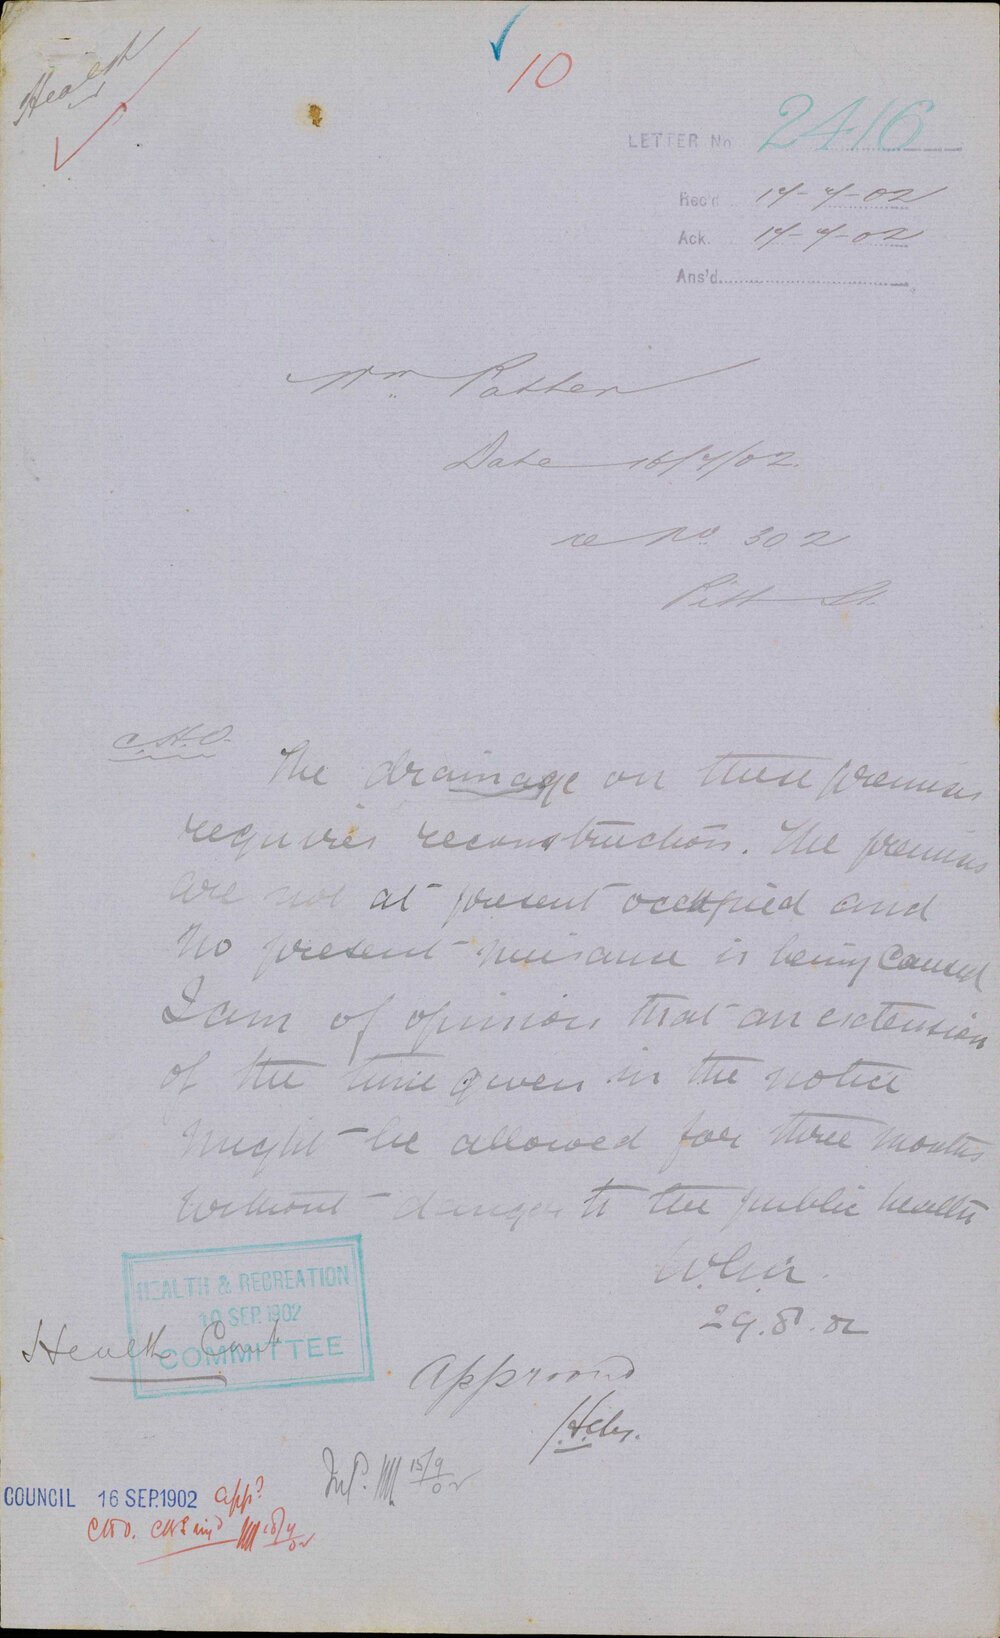 Health
10
LETTER No 2416
Rec'd 17-7-02
Ack. 17-7-02
Ans'd
Wm Patten
Date 16/7/02
re No 302
Pitt St.
C.H.O.
The drainage on these premises
requires reconstruction. The premises
are not at present occupied and
No present nuisance is being caused
I am of opinion that an extension
of the time given in the notice
might be allowed for three months
without danger to the public health
29.8.02
HEALTH & RECREATION
10 SEP. 1902
COMMITTEE
Health Comt
Approved
15/9/02
COUNCIL 16 SEP. 1902 app?